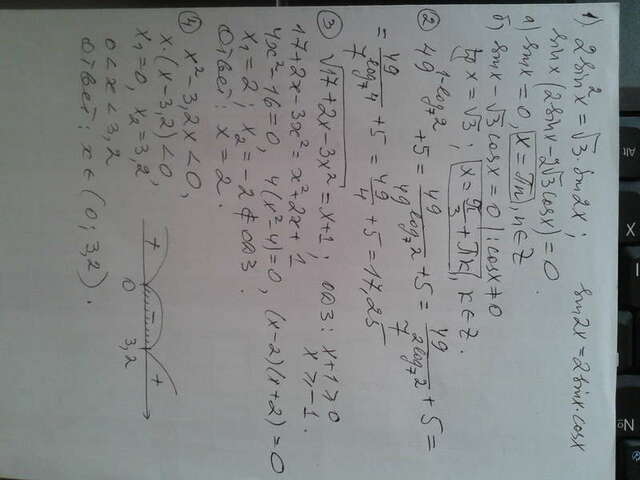 1) 2sin²x = √3·sin2x;    sin2x = 2sinx·cosx
sinx(2sinx - 2√3cosx) = 0.
а) sinx = 0, x = πn, n ∈ Z
б) sinx - √3cosx = 0 | : cosx ≠ 0
tgx = √3; x = π/3 + πk, k ∈ Z.
② 49^(1-log₇2) + 5 = 49/49^(log₇2) + 5 = 49/7^(2log₇2) + 5 =
= 49/7^(log₇4) + 5 = 49/4 + 5 = 17,25
③ √(17+2x-3x²) = x+1; ОДЗ: x+1 ≥ 0
x ≥ -1.
17+2x-3x² = x²+2x+1
4x²-16=0, 4(x²-4)=0, (x-2)(x+2)=0
x₁ = 2; x₂ = -2 ∉ ОДЗ.
Ответ: x = 2.
④ x² - 3,2x < 0,
x·(x-3,2) < 0
x₁=0, x₂=3,2,
+ 0 - 3,2 +
0 < x < 3,2
Ответ: x ∈ (0; 3,2).
Alt
X
№